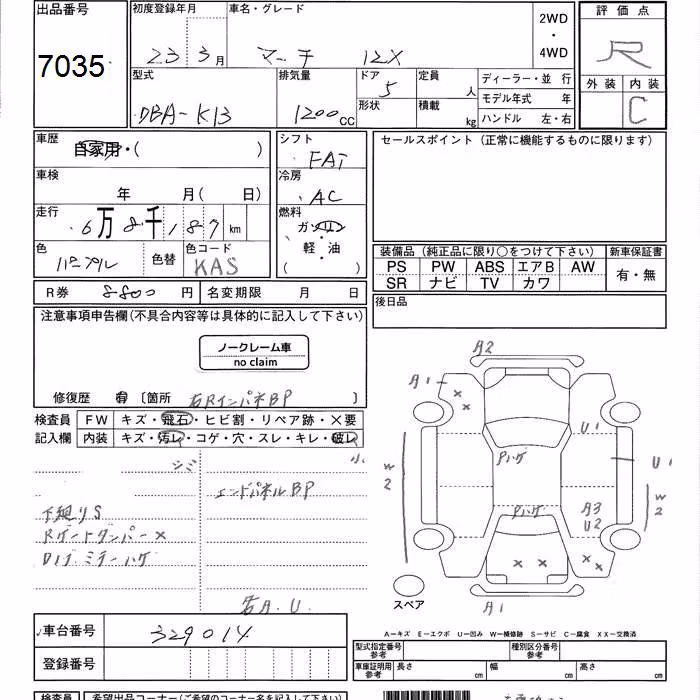 出品番号
7035
初度登録年月
23 3月
車名・グレード
マーチ 12X
2WD
・
4WD
評価点
R
外装 内装
C
型式
DBA-K13
排気量
1200cc
ドア
5
形状
定員
人
積載
kg
ディーラー・並 行
モデル年式 年
ハンドル 左・右
車歴
自家用・( )
車検
年 月 ( 日)
走行
6万8千187km
色
パープル
色替
色コード
KAS
シフト
FAT
冷房
AC
燃料
ガソリン
軽・油
( )
セールスポイント(正常に機能するものに限ります)
装備品(純正品に限り○をつけて下さい)
PS PW ABS エアB AW
SR ナビ TV カワ
新車保証書
有・無
後日品
R券 8800円
名変期限 月 日
注意事項申告欄(不具合内容等は具体的に記入して下さい)
ノークレーム車
no claim
修復歴 有 〔箇所 右RインパネBP 〕
検査員
記入欄
FW キズ・飛石・ヒビ割・リペア跡・×要
内装 キズ・汚レ・コゲ・穴・スレ・キレ・破レ
シミ 小
エンドパネルBP
下廻りS
Rゲートダンパー×
D1デミラーハゲ
右A.U.
A2
A1
U1
U1
W2
W2
Pハゲ
Pハゲ
A3
U2
A1
スペア
A-キズ E-エクボ U-凹み W-補修跡 S-サビ C-腐食 XX-交換済
車台番号
329014
登録番号
型式指定番号
参考
種別区分番号
参考
車庫証明用
参考
長さ cm
幅 cm
高さ cm
検査員
希望出品コーナー(ご希望のコーナー名を記入下さい)